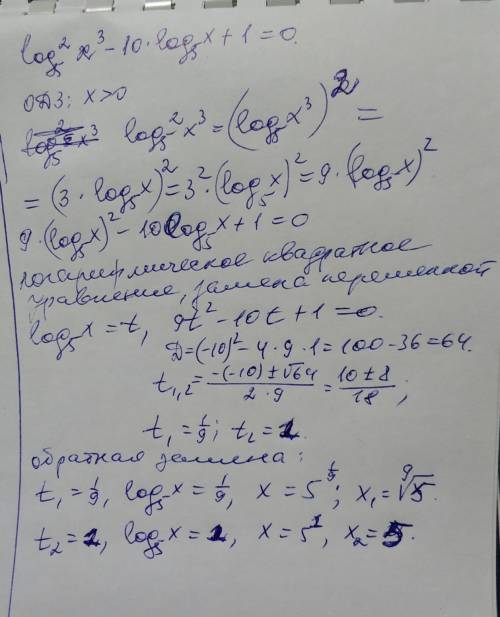 log₅² x³ - 10·log₅x + 1 = 0.
ОДЗ: x>0
log₅² x³ = (log₅x³)² =
= (3·log₅x)² = 3²·(log₅x)² = 9·(log₅x)²
9·(log₅x)² - 10log₅x + 1 = 0
логарифмическое квадратное
уравнение, замена переменной
log₅x = t, 9t² - 10t + 1 = 0.
D = (-10)² - 4·9·1 = 100 - 36 = 64.
t₁,₂ = (-(-10) ± √64)/(2·9) = (10 ± 8)/18;
t₁ = 1/9; t₂ = 1.
обратная замена:
t₁ = 1/9, log₅x = 1/9, x = 5^(1/9); x₁ = ⁹√5.
t₂ = 1, log₅x = 1, x = 5¹, x₂ = 5.